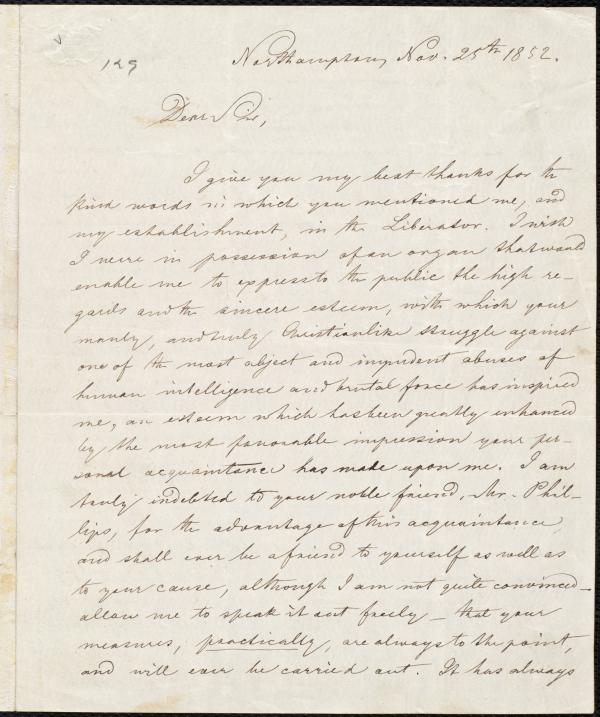 129
Northampton, Nov. 25th 1852.
Dear Sir,
I give you my best thanks for the
kind words in which you mentioned me, and
my establishment, in the Liberator. I wish
I were in possession of an organ that would
enable me to express to the public the high re-
gards and the sincere esteem, with which your
manly, and truly Christianlike struggle against
one of the most abject and impudent abuses of
human intelligence and brutal force has inspired
me, an esteem which has been greatly enhanced
by the most favorable impression, your per-
sonal acquaintance has made upon me. I am
truly indebted to your noble friend, Mr. Phil-
lips, for the advantage of this acquaintance,
and shall ever be a friend to yourself as well as
to your cause, although I am not quite convinced -
allow me to speak it out freely - that your
measures, practically, are always to the point,
and will ever be carried out. It has always